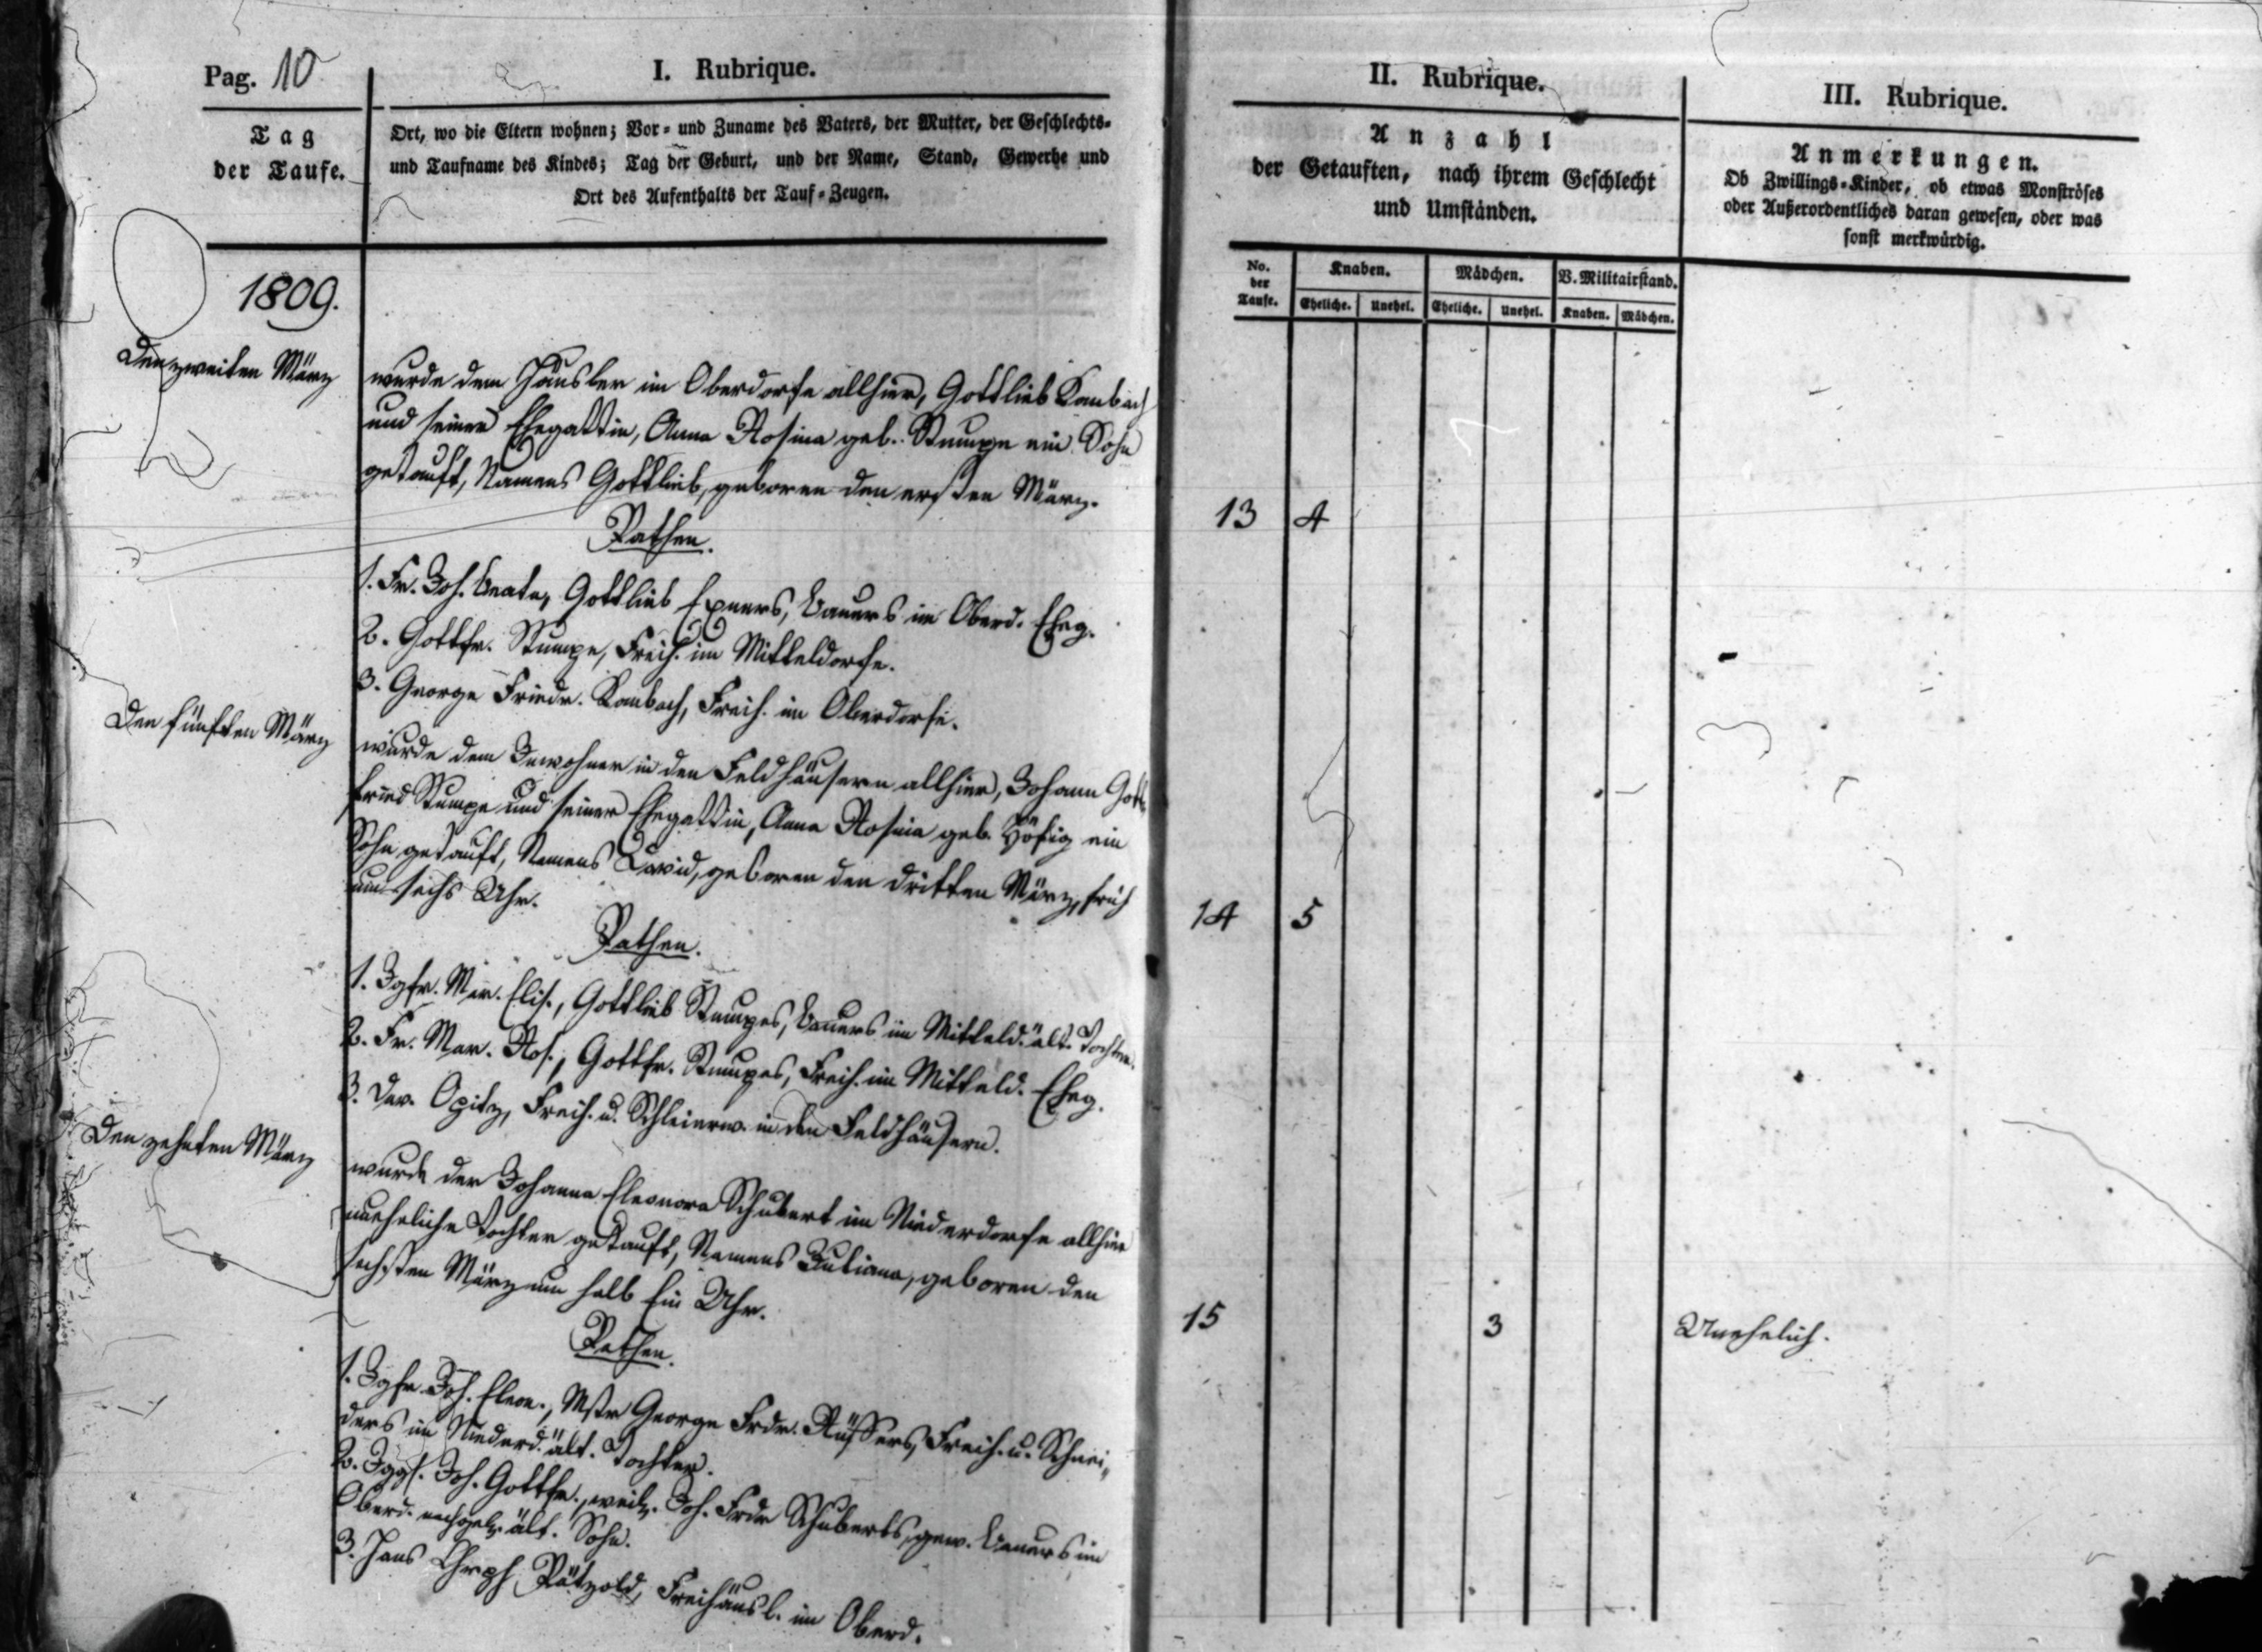 Pag. 10
I. Rubrique.
Tag
der Taufe.
Ort, wo die Eltern wohnen; Vor- und Zuname des Vaters, der Mutter, der Geschlechts-
und Taufname des Kindes; Tag der Geburt, und der Name, Stand, Gewerbe und
Ort des Aufenthalts der Tauf-Zeugen.
1809.
Den zweiten März
wurde dem Häusler im Oberdorfe allhier, Gottlieb Kambach
und seiner Ehegattin, Anna Rosina geb. Stumpe ein Sohn
getauft, Namens Gottlieb, geboren den ersten März.
Pathen.
1. Fr. Joh. Beate, Gottlieb Exners, Bauers im Oberd. Eheg.
2. Gottfr. Stumpe, Freih. im Mitteldorfe.
3. George Friedr. Kambach, Freih. im Oberdorfe.
Den fünften März
wurde dem Inwohner in den Feldhäusern allhier, Johann Gott-
fried Stumpe und seiner Ehegattin, Anna Rosina geb. Höfig ein
Sohn getauft, Namens David, geboren den dritten März, früh
um sechs Uhr.
Pathen.
1. Jgfr. Mar. Elis., Gottlieb Stumpes, Bauers im Mitteld. ält. Tochter.
2. Fr. Mar. Ros., Gottfr. Stumpes, Freih. im Mitteld. Eheg.
3. Dav. Opitz, Freih. u. Schleierw. in den Feldhäusern.
Den zehnten März
wurde der Johanna Eleonora Schubert im Niederdorfe allhier
uneheliche Tochter getauft, Namens Juliana, geboren den
sechsten März um halb Ein Uhr.
Pathen.
1. Jgfr. Joh. Eleon., Mstr George Frdr. Rüffers, Freih. u. Schnei-
ders im Niederd. ält. Tochter.
2. Jggs. Joh. Gottfr., weil. Joh. Frdr Schuberts, gew. Bauers im
Oberd. nachgel. ält. Sohn.
3. Hans Chrph Pätzold, Freihäusl. im Oberd.
II. Rubrique.
Anzahl
der Getauften, nach ihrem Geschlecht
und Umständen.
No.
der
Taufe.
Knaben.
Mädchen.
V. Militairstand.
Eheliche.
Unehel.
Eheliche.
Unehel.
Knaben.
Mädchen.
13 4
14 5
15 3
III. Rubrique.
Anmerkungen.
Ob Zwillings-Kinder, ob etwas Monströses
oder Außerordentliches daran gewesen, oder was
sonst merkwürdig.
Unehelich.